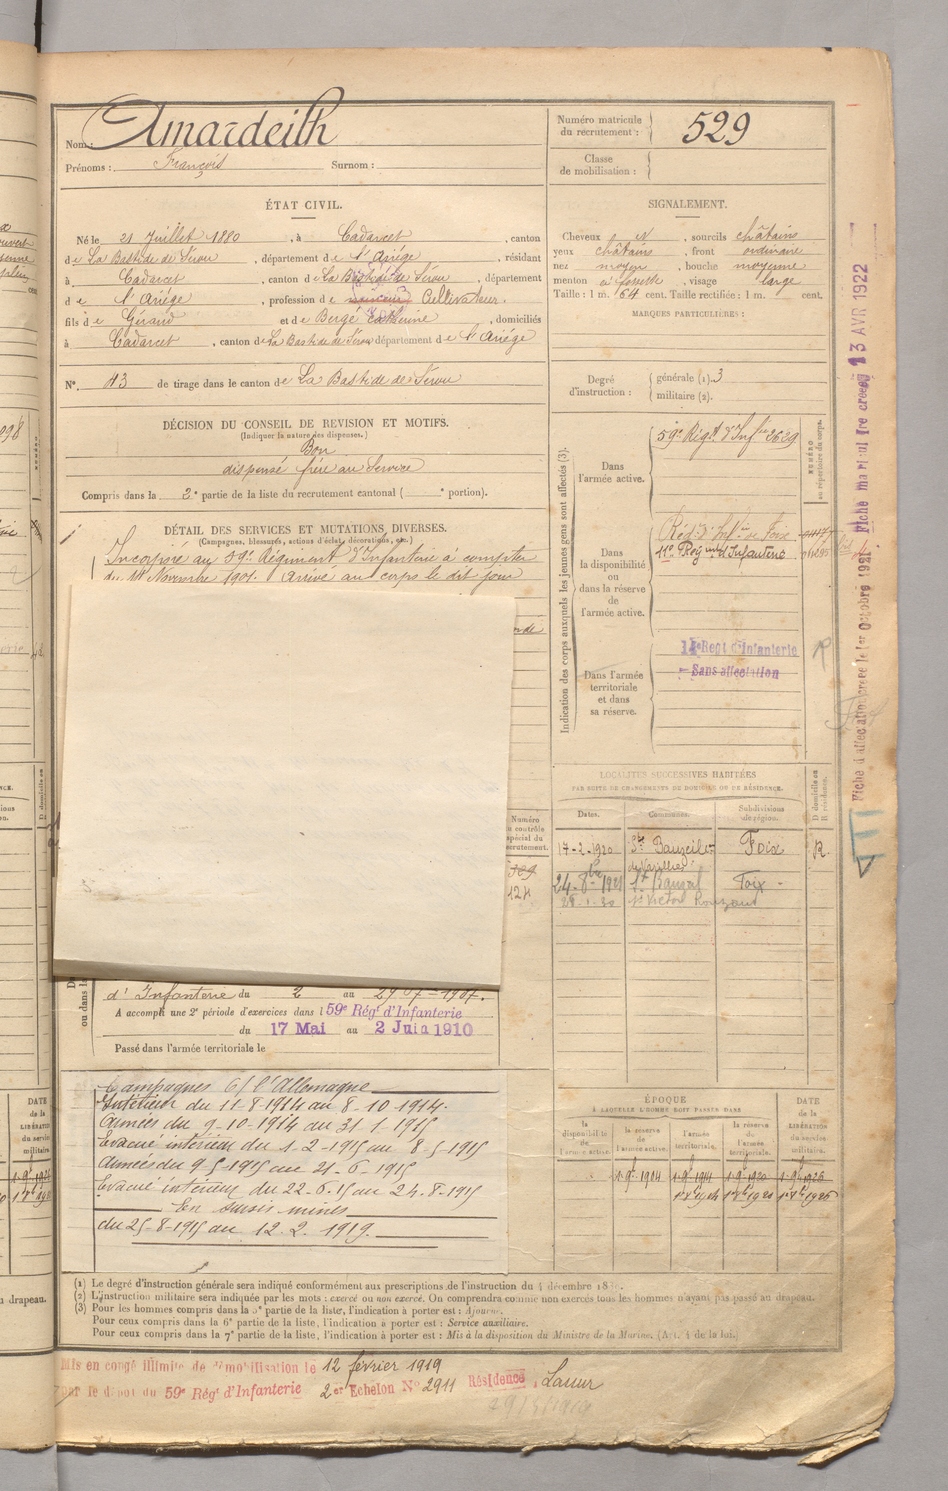 Nom : Amardeilh
Prénoms : François Surnom :
Numéro matricule du recrutement : 529
Classe de mobilisation :
ÉTAT CIVIL.
Né le 21 Juillet 1880, à Cadarcet, canton
de La Bastide de Sérou, département de l'Ariège, résidant
à Cadarcet, canton de La Bastide de Sérou, département
de l'Ariège, profession de Cultivateur.
fils de Géraud et de Bergé Catherine, domiciliés
à Cadarcet, canton de La Bastide de Sérou département de l'Ariége
N° 43 de tirage dans le canton de La Bastide de Sérou
SIGNALEMENT.
Cheveux N, sourcils châtains
yeux châtains, front ordinaire
nez moyen, bouche moyenne
menton à fossette, visage large
Taille : 1 m. 64 cent. Taille rectifiée : 1 m. cent.
MARQUES PARTICULIÈRES :
Degré d'instruction : générale (1). 3
militaire (2).
DÉCISION DU CONSEIL DE REVISION ET MOTIFS.
(Indiquer la nature des dispenses.)
Bon
dispensé frère au Service
Compris dans la 2e partie de la liste du recrutement cantonal ( e portion).
DÉTAIL DES SERVICES ET MUTATIONS DIVERSES.
(Campagnes, blessures, actions d'éclat, décorations, etc.)
Incorporé au 59e Régiment d'Infanterie à compter
du 14 Novembre 1901. Arrivé au corps le dit jour
Indication des corps auxquels les jeunes gens sont affectés (3).
NUMÉRO au répertoire du corps.
Dans l'armée active.
59e Régt d'Infrie 2629
Dans la disponibilité ou dans la réserve de l'armée active.
Régt d'Infrie de Foix
11e Régiment d'Infanterie
Dans l'armée territoriale et dans sa réserve.
Regt d'Infanterie
Sans affectation
Fiche d'affectation créée le 1er Octobre 1921
Fiche matricule créée 13 AVR 1922
LOCALITÉS SUCCESSIVES HABITÉES
PAR SUITE DE CHANGEMENTS DE DOMICILE OU DE RÉSIDENCE.
Dates. Communes. Subdivisions de région. D domicile ou R résidence.
17-2-1920 St Bauzeil de Varilhes Foix R
24-8bre-1921 St Bauzeil Foix
St Victor Rouzaud
Numéro au contrôle spécial du recrutement.
124
d'Infanterie du 2 au 29-7-1907.
A accompli une 2e période d'exercices dans l 59e Régt d'Infanterie
du 17 Mai au 2 Juin 1910
Passé dans l'armée territoriale le
Campagnes C/ l'Allemagne
Intérieur du 11-8-1914 au 8-10-1914.
Armées du 9-10-1914 au 31-1-1915
Evacué intérieur du 1-2-1915 au 8-5-1915
Armées du 9-5-1915 au 21-6-1915
Evacué intérieur du 22-6-15 au 24-8-1915
En sursis mines
du 25-8-1915 au 12.2.1919.
ÉPOQUE
À LAQUELLE L'HOMME DOIT PASSER DANS
la disponibilité de l'armée active. la réserve de l'armée active. l'armée territoriale. la réserve de l'armée territoriale. DATE de la LIBÉRATION du service militaire.
1-9bre-1904
(1) Le degré d'instruction générale sera indiqué conformément aux prescriptions de l'instruction du 4 décembre
(2) L'instruction militaire sera indiquée par les mots : exercé ou non exercé. On comprendra comme non exercés tous les hommes n'ayant pas passé au drapeau.
(3) Pour les hommes compris dans la 5e partie de la liste, l'indication à porter est : Ajourné.
Pour ceux compris dans la 6e partie de la liste, l'indication à porter est : Service auxiliaire.
Pour ceux compris dans la 7e partie de la liste, l'indication à porter est : Mis à la disposition du Ministre de la Marine. (Art. 4 de la loi.)
Mis en congé illimité de démobilisation le 12 février 1919
par le dépôt du 59e Régt d'Infanterie 2e Echelon N° 2911 Résidence, Lasur